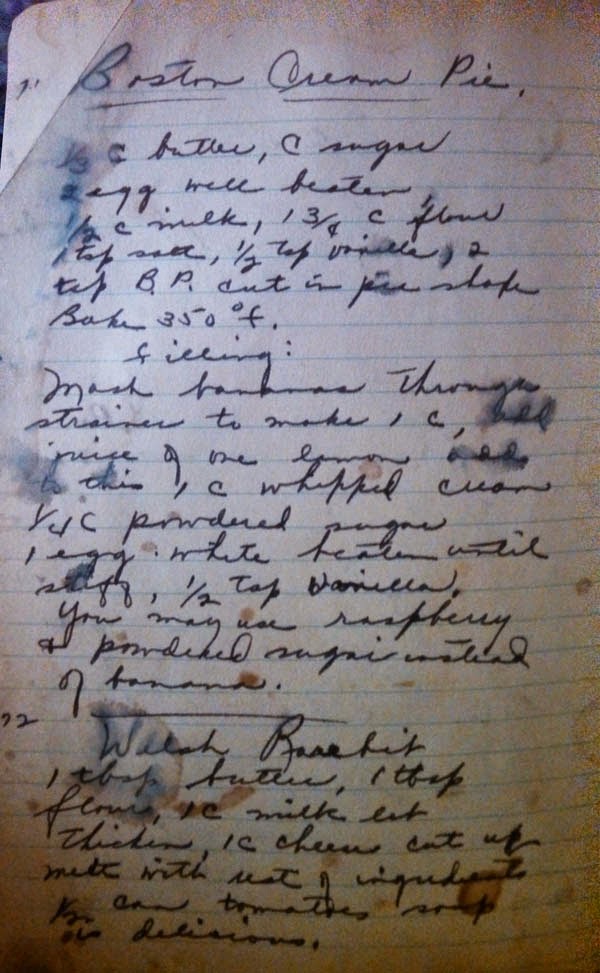 71 Boston Cream Pie.
1/3 C butter, C sugar
2 egg well beaten,
1/2 c milk, 1 3/4 c flour
1 tsp salt, 1/2 tsp vanilla, 2
tsp B.P. cut in pie shape
Bake 350°f.
filling:
Mash bananas through
strainer to make 1 C, add
juice of one lemon add
to this 1 c whipped cream
1/4 C powdered sugar
1 egg white beaten until
stiff, 1/2 tsp vanilla.
You may use raspberry
& powdered sugar instead
of banana.
72
Welsh Rarebit
1 tbsp butter, 1 tbsp
flour, 1c milk let
thicken, 1c cheese cut up
melt with rest of ingredients
1/2 can tomatoes soup
is delicious.